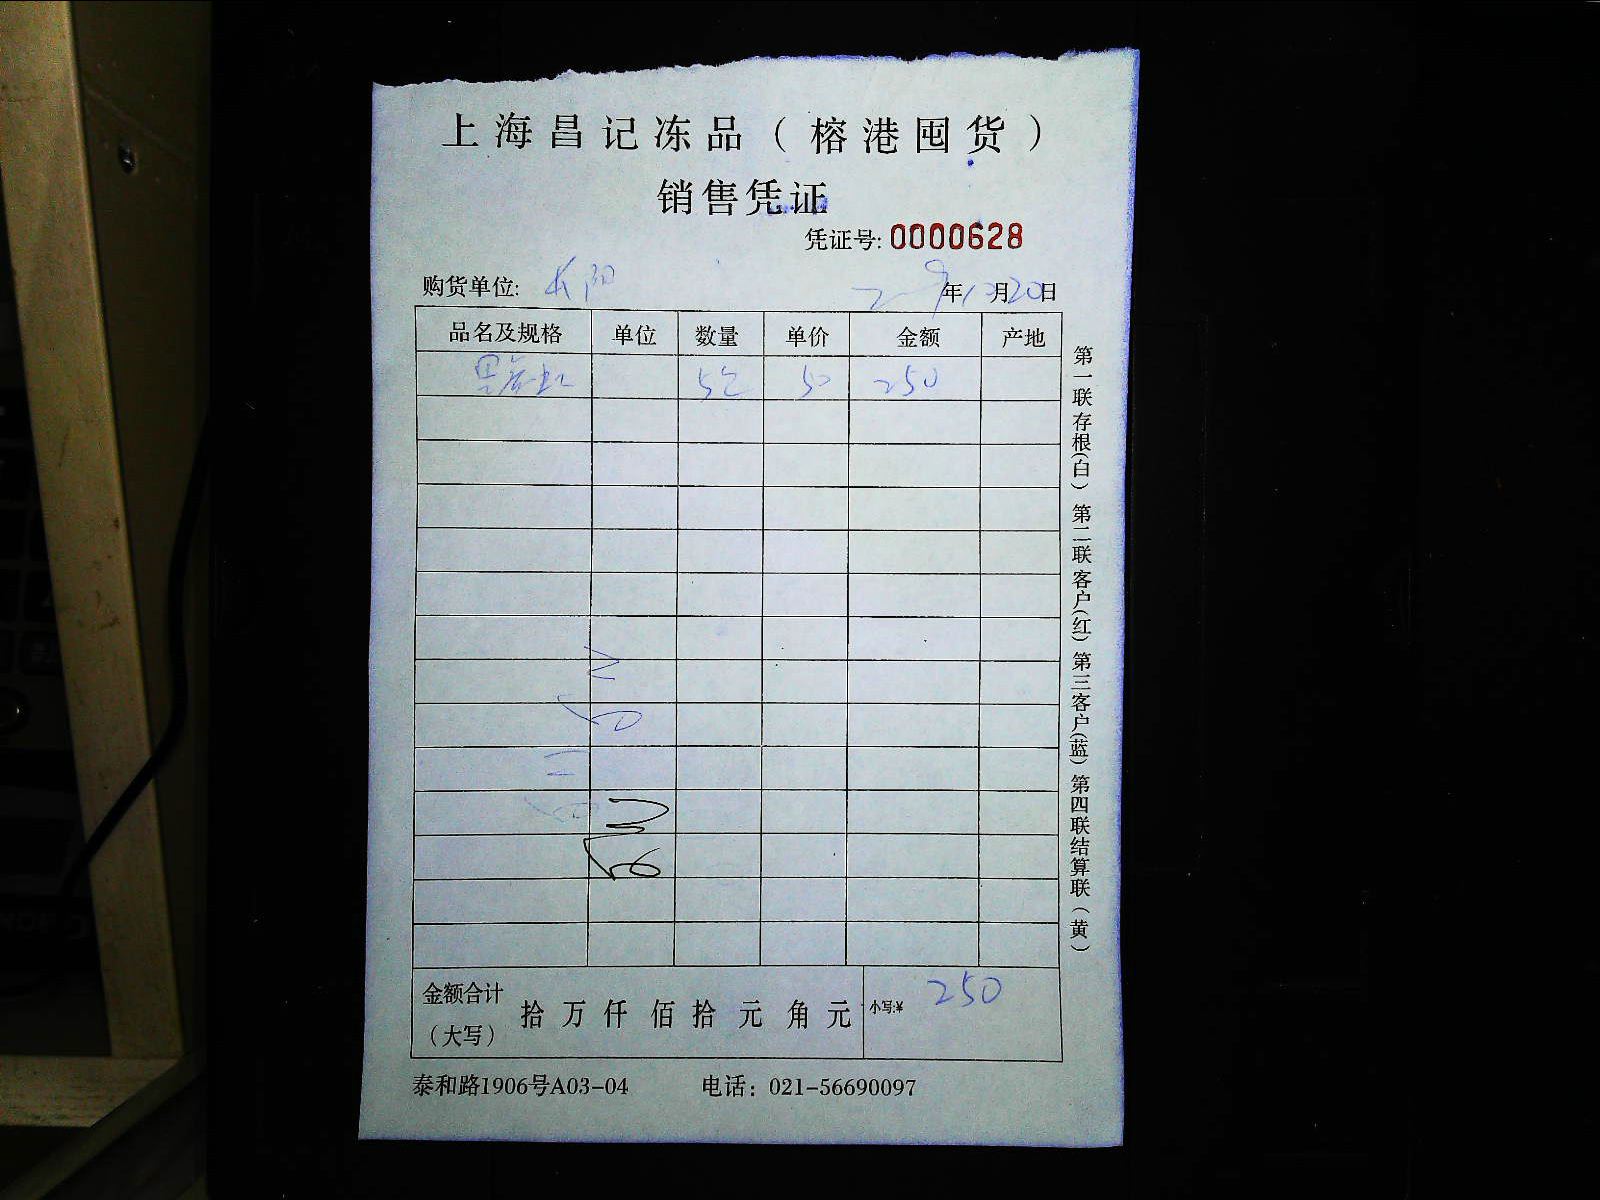 上海昌记冻品（榕港囤货）
销售凭证
凭证号: 0000628
购货单位: 长阳 年10月20日
品名及规格 单位 数量 单价 金额 产地
50 250
金额合计（大写） 拾 万 仟 佰 拾 元 角 元 小写:¥ 250
泰和路1906号A03-04 电话：021-56690097
第一联存根(白) 第二联客户(红) 第三客户(蓝) 第四联结算联(黄)